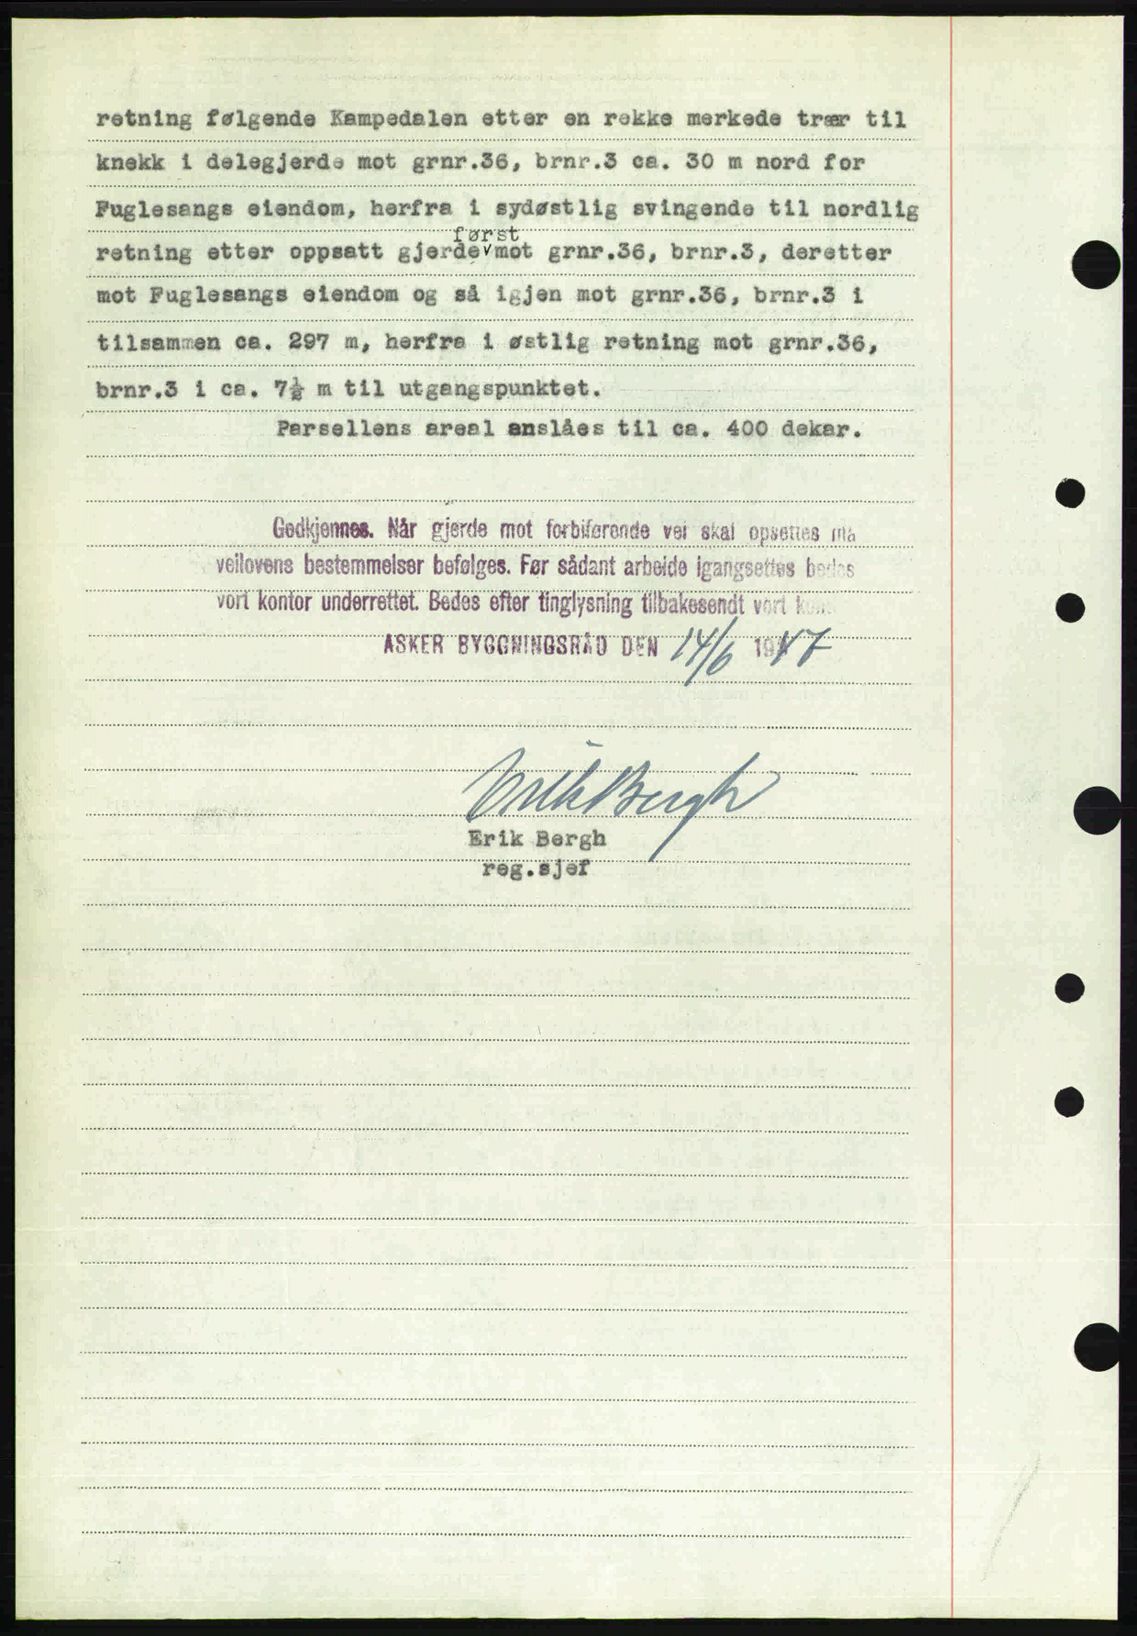 retning følgende Kampedalen etter en rekke merkede trær til
knekk i delegjerde mot grnr.36, brnr.3 ca. 30 m nord for
Fuglesangs eiendom, herfra i sydøstlig svingende til nordlig
først
retning etter oppsatt gjerde v mot grnr.36, brnr.3, deretter
mot Fuglesangs eiendom og så igjen mot grnr.36, brnr.3 i
tilsammen ca. 297 m, herfra i østlig retning mot grnr.36,
brnr.3 i ca. 7½ m til utgangspunktet.
Parsellens areal anslåes til ca. 400 dekar.
Godkjennes. Når gjerde mot forbiførende vei skal opsettes må
veilovens bestemmelser befølges. Før sådant arbeide igangsettes bedes
vort kontor underrettet. Bedes efter tinglysning tilbakesendt vort
ASKER BYGGNINGSRÅD DEN 14/6 1947
Erik Bergh
Erik Bergh
reg.sjef